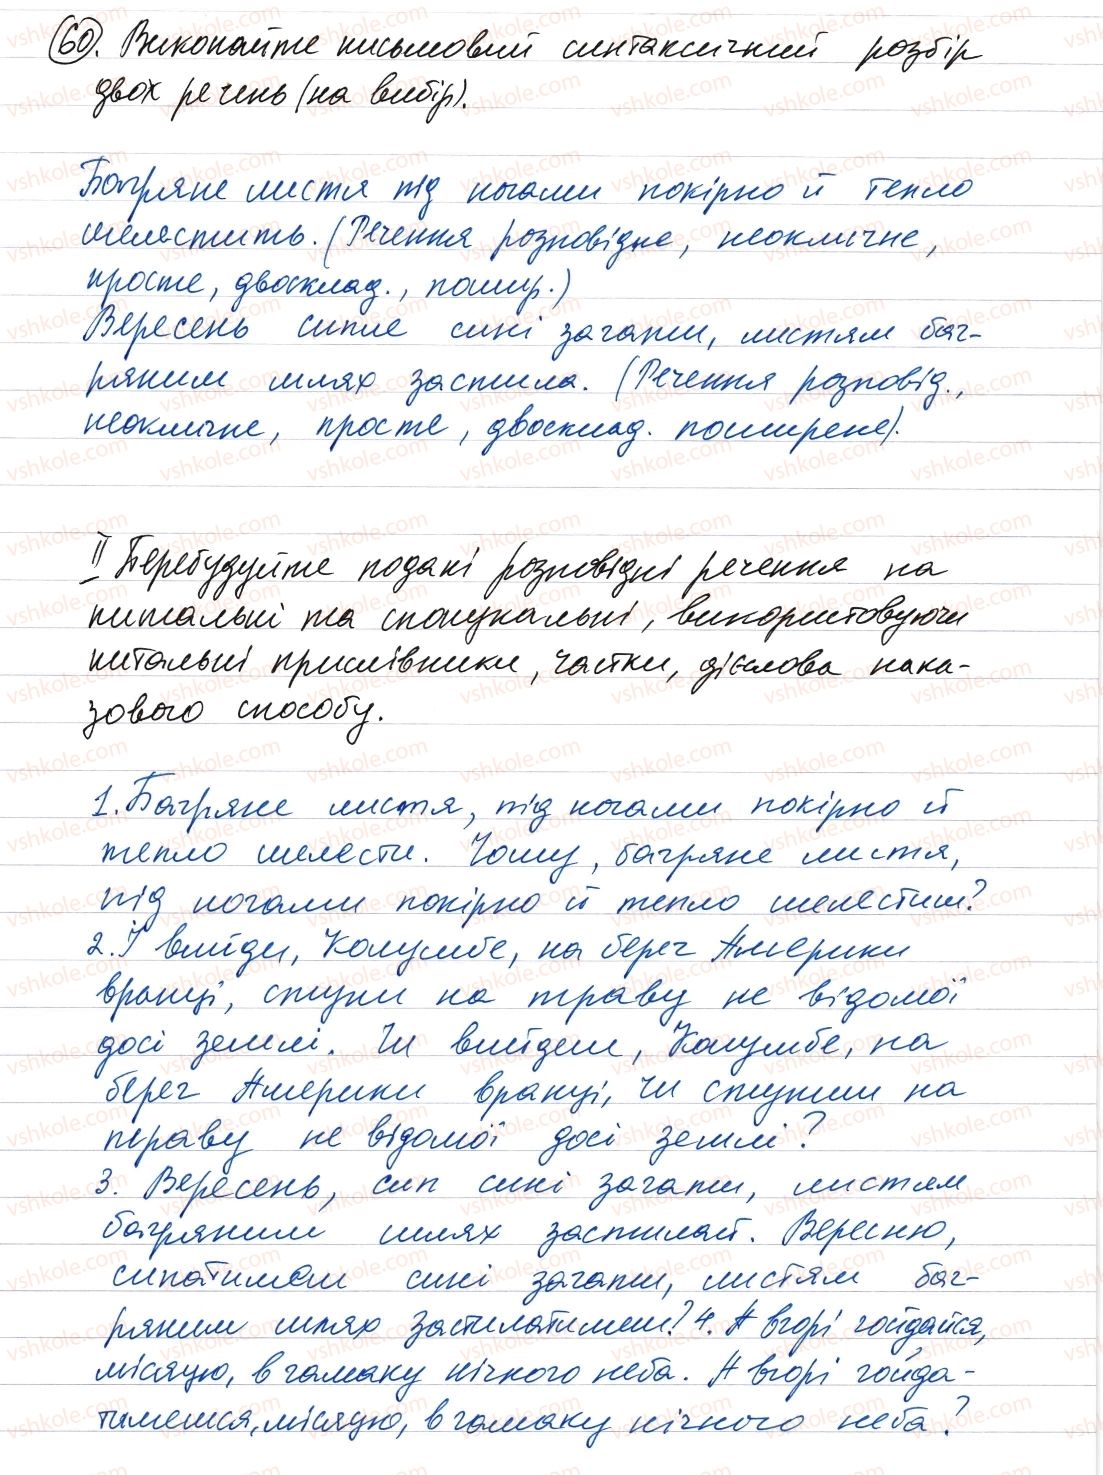 60. Виконайте письмовий синтаксичний розбір
двох речень (на вибір).
Багряне листя під ногами покірно й тепло
шелестить. (Речення розповідне, неокличне,
просте, двосклад., пошир.)
Вересень сипле сині загати, листям баг-
ряним шлях застила. (Речення розповід.,
неокличне, просте, двосклад. поширене).
II Перебудуйте подані розповідні речення на
питальні та спонукальні, використовуючи
питальні прислівники, частки, дієслова нака-
зового способу.
1. Багряне листя, під ногами покірно й
тепло шелести. Чому, багряне листя,
під ногами покірно й тепло шелестиш?
2. І вийди, Колумбе, на берег Америки
вранці, ступи на траву не відомої
досі землі. Чи вийдеш, Колумбе, на
берег Америки вранці, чи ступиш на
траву не відомої досі землі?
3. Вересень, сип сині загати, листям
багряним шлях застилай. Вересню,
сипатимеш сині загати, листям баг-
ряним шлях застилатимеш? 4. А вгорі гойдайся,
місяцю, в гамаку нічного неба. А вгорі гойда-
тимешся, місяцю, в гамаку нічного неба?